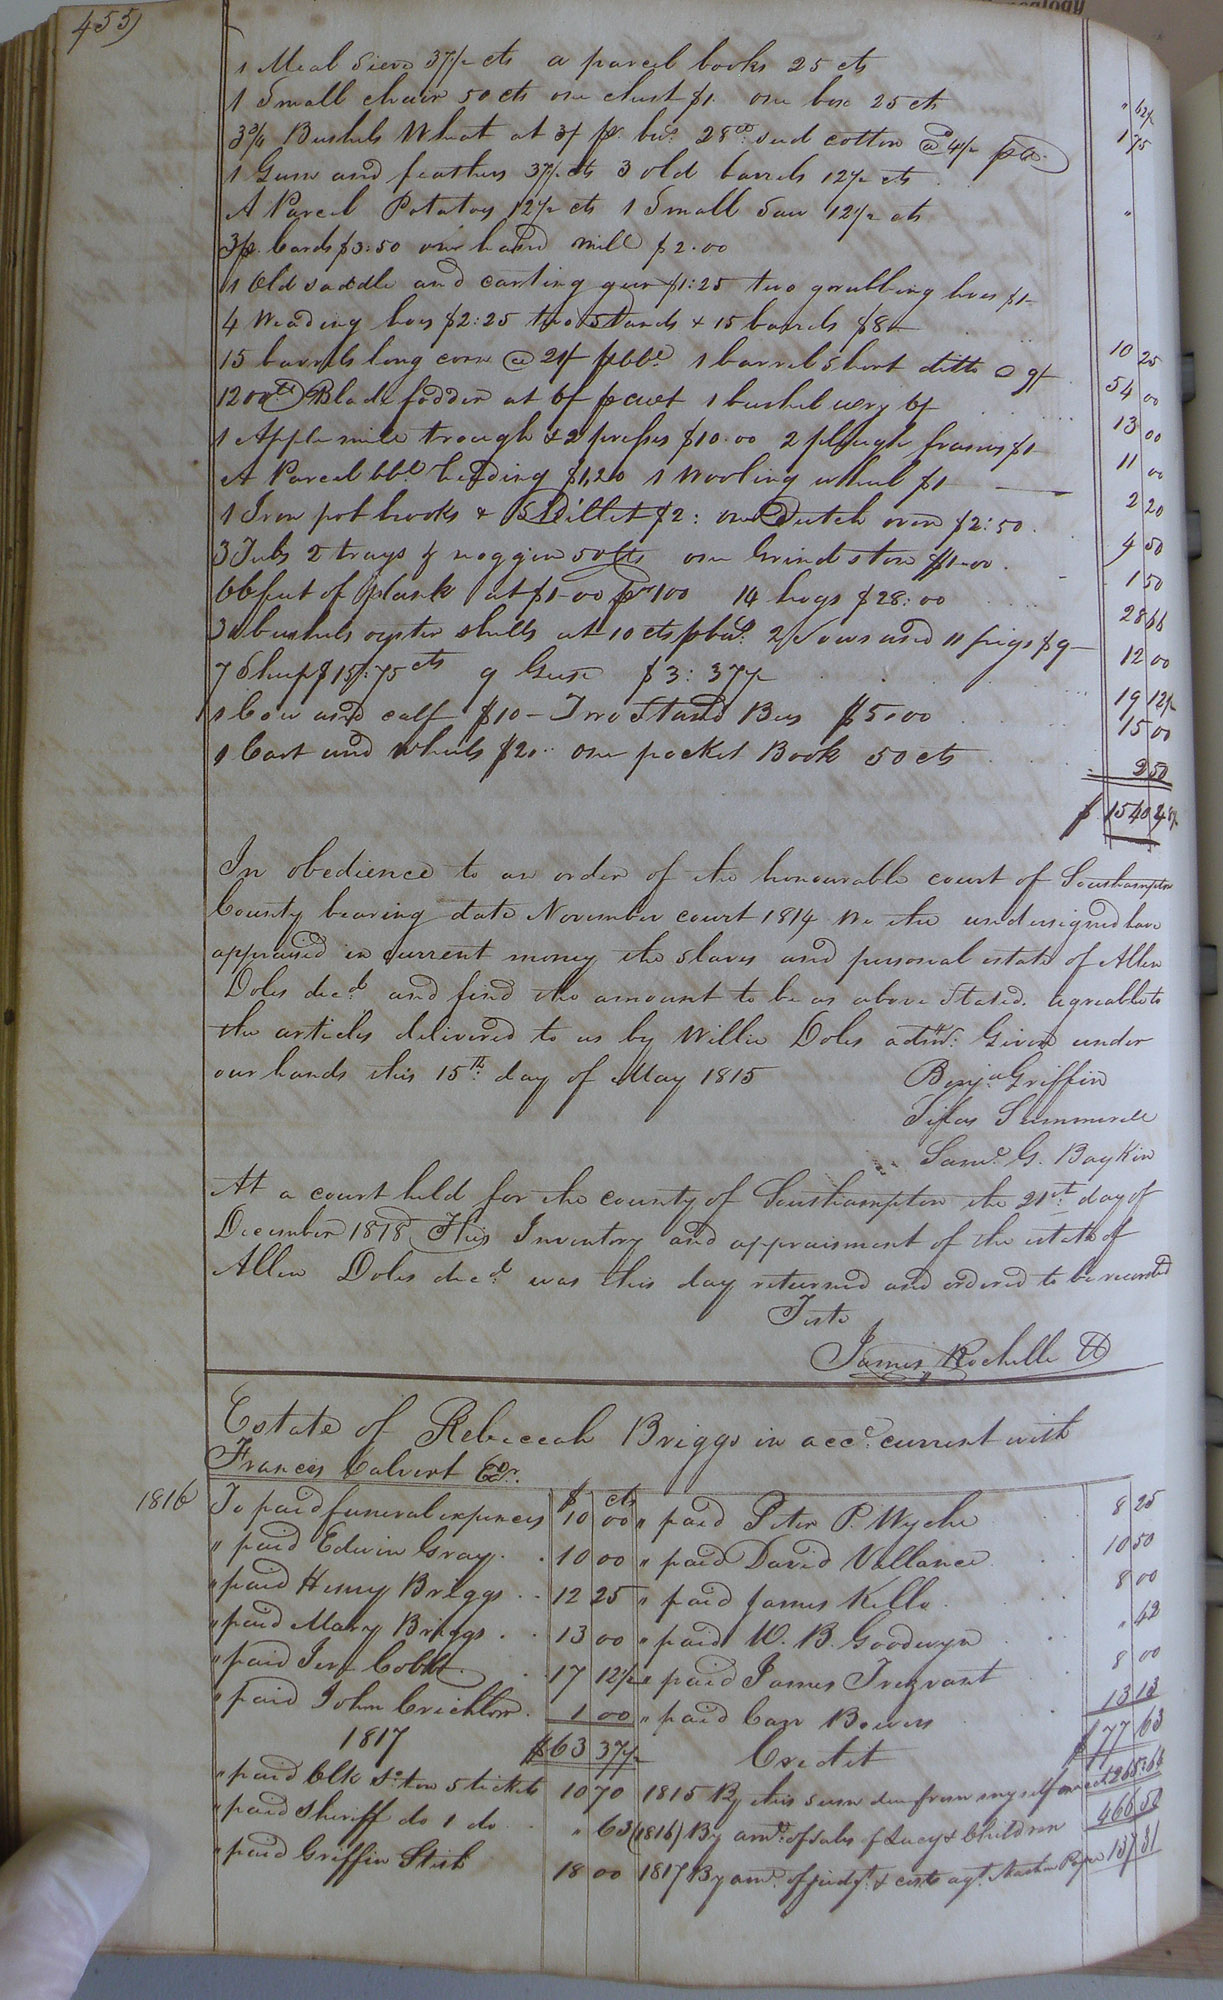 455)
1 Meal Sieve 37½ cts a parcel books 25 cts " 62½
1 Small chair 50 cts one chest $1. one box 25 cts 1 75
3¾ Bushels Wheat at 3/ pr. bus. 28 seed cotton @ 4½
1 Gum and feathers 37½ cts 3 old barrels 12½ cts
A Parcel Potatoes 12½ cts 1 Small Saw 12½ cts "
3 pr. Cards $3:50 one hand mill $2.00
1 Old saddle and carting gear $1:25 two grubbing hoes $1-
4 Weading hoes $2:25 two Stands & 15 barrels $8- 10 25
15 barrels long corn @ 21/ pbbl 1 barrel Short ditto @ 9/ 54 00
1200 wt Blade fodder at 6/ p cwt 1 bushel 6/ 13 00
1 Apple mill trough & 2 presses $10.00 2 plough frames $1- 11 00
A Parcel bbl. heading $1,20 1 Wooling wheel $1 2 20
1 Iron pot hooks & Skillet $2: one Dutch oven $2:50. 4 50
3 Tubs 2 trays & noggin 50 cts one Grindstone $1.00. 1 50
66 feet of plank at $1-00 pr 100 14 hogs $28:00 28 66
30 bushels oyster shells at 10 cts pbus. 2 Sows and 11 pigs $9- 12 00
7 Sheep $15:75 cts 9 Geese $3:37½ 19 12½
1 Cow and calf $10- Two Stand Bees $5.00 15 00
1 Cart and wheels $2.. one pocket Book 50 cts 2 50
$ 1540 28½
In obedience to an order of the honourable court of Southampton
County bearing date November court 1814 We the undersigned have
appraised in current money the slaves and personal estate of Allen
Doles decd. and find the amount to be as above Stated. agreable to
the articles delivered to us by Willie Doles admr: Given under
our hands this 15th: day of May 1815
Benja Griffin
Silas Summerell
Saml. G. Boykin
At a court held for the county of Southampton the 21st: day of
December 1818 This Inventory and appraisment of the estate of
Allen Doles decd. was this day returned and ordered to be recorded
Teste
James Rochelle Cl
Estate of Rebeccah Briggs in acct. current with
Frances Calvert Exr.
$ cts
1816 To paid funeral expences 10 00 " paid Peter P. Wyche 8 25
" paid Edwin Gray. 10 00 " paid David Vallance. 10 50
" paid Henry Briggs 12 25 " paid James Kello. 8 00
" paid Mary Briggs. 13 00 " paid W. B. Goodwyn " 42
" paid Jere Cobb 17 12½ " paid James Trezvant 8 00
" paid John Crichlow. 1 00 " paid Carr Bowers 13 13
1817 $63 37½ Credit $77 63
" paid Clk So:ton 5 tickets 10 70 1815 By this sum due from myself on acct 268:66
" paid Sheriff do 1 do " 63 (1816) By amt. of sales of Lucy & Children 460 50
" paid Griffin Stith 18 00 1817 By amt. of judgt. & costs agt. 137 31